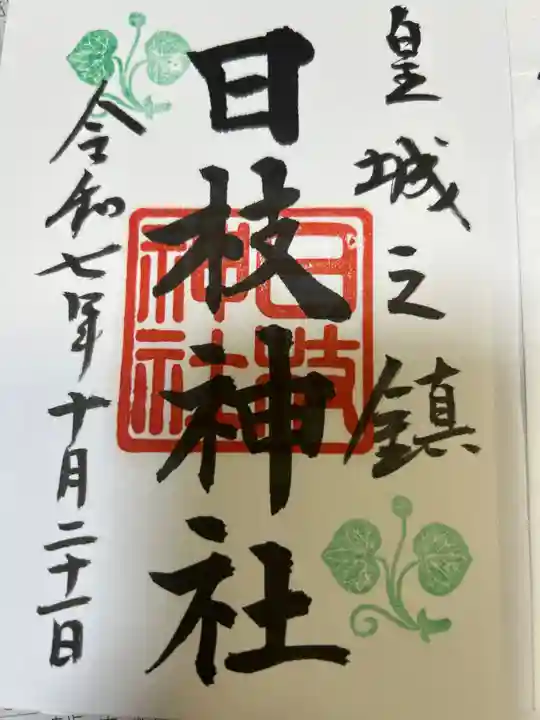 皇城之鎮
日枝神社
日枝神社
令和七年十月二十一日